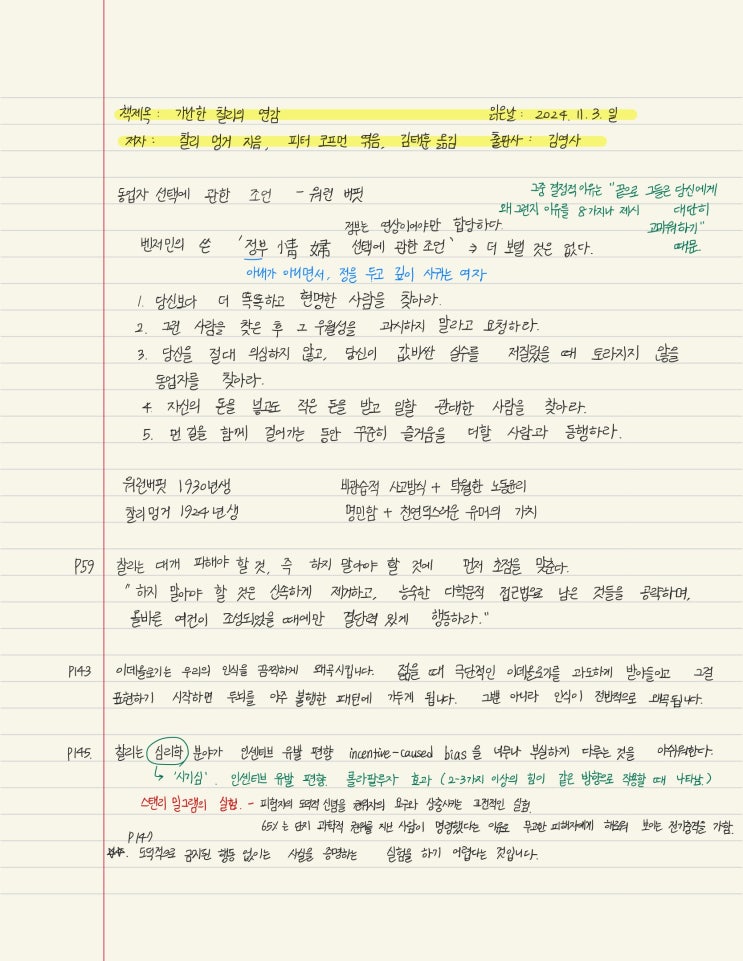 책제목 : 가난한 찰리의 연감 읽은날 : 2024. 11. 3. 일
저자 : 찰리 멍거 지음, 피터 코프먼 엮음, 김태훈 옮김 출판사 : 김영사
동업자 선택에 관한 조언 - 워런 버핏
그중 결정적 이유는 "끝으로 그들은 당신에게
왜 그런지 이유를 8가지나 제시 대단히
정부는 연상이어야만 합당하다. 고마워하기"
벤저민의 쓴 '정부 情婦 선택에 관한 조언' → 더 보탤 것은 없다. 때문.
아내가 아니면서, 정을 두고 깊이 사귀는 여자
1. 당신보다 더 똑똑하고 현명한 사람을 찾아라.
2. 그런 사람을 찾은 후 그 우월성을 과시하지 말라고 요청하라.
3. 당신을 절대 의심하지 않고, 당신이 값비싼 실수를 저질렀을 때 토라지지 않을
동업자를 찾아라.
4. 자신의 돈을 넣고도 적은 돈을 받고 일할 관대한 사람을 찾아라.
5. 먼 길을 함께 걸어가는 동안 꾸준히 즐거움을 더할 사람과 동행하라.
워런버핏 1930년생 비관습적 사고방식 + 탁월한 노동윤리
찰리멍거 1924년생 명민함 + 천연덕스러운 유머의 가치
P59 찰리는 대개 피해야 할 것, 즉 하지 말아야 할 것에 먼저 초점을 맞춘다.
"하지 말아야 할 것은 신속하게 제거하고, 능숙한 다학문적 접근법으로 남은 것들을 공략하며,
올바른 여건이 조성되었을 때에만 결단력 있게 행동하라."
P143 이데올로기는 우리의 인식을 끔찍하게 왜곡시킵니다. 젊을 때 극단적인 이데올로기를 과도하게 받아들이고 그걸
표현하기 시작하면 두뇌를 아주 불행한 패턴에 가두게 됩니다. 그뿐 아니라 인식이 전반적으로 왜곡됩니다.
P145. 찰리는 심리학 분야가 인센티브 유발 편향 incentive-caused bias을 너무나 부실하게 다루는 것을 아쉬워한다.
↳ '시기심'. 인센티브 유발 편향. 롤라팔루자 효과 (2-3가지 이상의 힘이 같은 방향으로 작용할 때 나타남.)
스탠리 밀그램의 실험. - 피험자의 도덕적 신념을 권위자의 요구와 상충시키는 고전적인 실험.
65%는 단지 과학적 권위를 지닌 사람이 명령했다는 이유로 무고한 피해자에게 해로워 보이는 전기충격을 가함.
P147
도덕적으로 금지된 행동 없이는 사실을 증명하는 실험을 하기 어렵다는 것입니다.